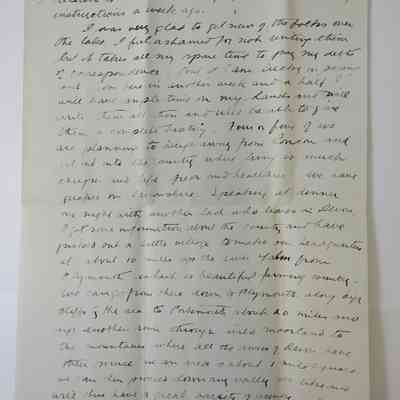 instructions a week ago.
I was very glad to get news of the folks over
the lake. I feel ashamed for not writing them
but it takes all my spare time to pay my debts
of correspondence.
out in another week and a half I
will have ample time on my hands and will
write them all then and will be able to give
them a complete history. Four or five of us
are planning to keep away from London and
get out into the country where living is much
cheaper and life fresh and healthier. We have
picked on Devonshire. Speaking at dinner
one night with another lad who lives in Devon
I got some information about the country and have
picked out a little village to make our headquarters
at about 10 miles up the river from
Plymouth in beautiful farming country.
We can go from there down to Plymouth along
the sea to about 20 miles and
up another river through wild moorland to
the mountains where all the rivers of Devon have
their source in an area about 1 mile square
we can then proceed down any valley we like and
and thus have a great variety of scenery